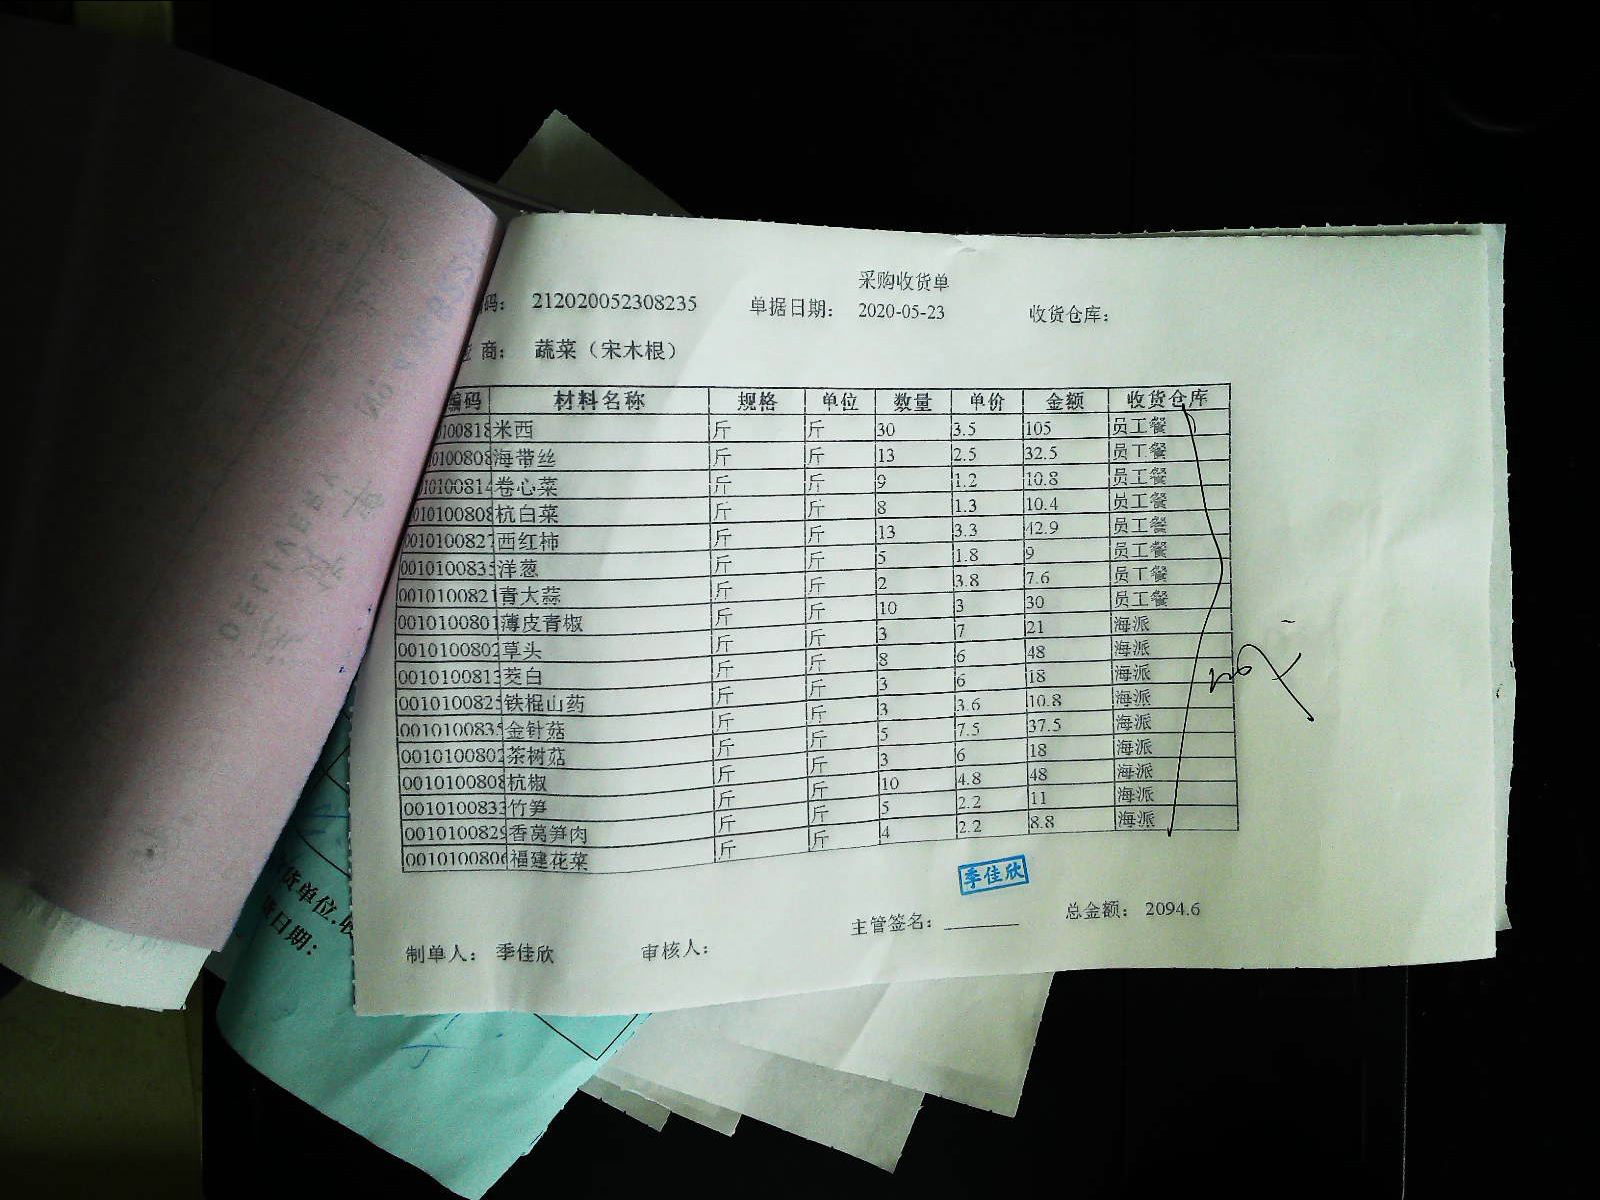 采购收货单
码： 212020052308235 单据日期： 2020-05-23 收货仓库：
商： 蔬菜（宋木根）
编码 材料名称 规格 单位 数量 单价 金额 收货仓库
0100818 米西 斤 斤 30 3.5 105 员工餐
0100808 海带丝 斤 斤 13 2.5 32.5 员工餐
010100814 卷心菜 斤 斤 9 1.2 10.8 员工餐
0010100808 杭白菜 斤 斤 8 1.3 10.4 员工餐
0010100827 西红柿 斤 斤 13 3.3 42.9 员工餐
0010100835 洋葱 斤 斤 5 1.8 9 员工餐
0010100821 青大蒜 斤 斤 2 3.8 7.6 员工餐
0010100801 薄皮青椒 斤 斤 10 3 30 员工餐
0010100802 草头 斤 斤 3 7 21 海派
0010100813 茭白 斤 斤 8 6 48 海派
0010100825 铁棍山药 斤 斤 3 6 18 海派
0010100835 金针菇 斤 斤 3 3.6 10.8 海派
0010100802 茶树菇 斤 斤 5 7.5 37.5 海派
0010100808 杭椒 斤 斤 3 6 18 海派
0010100833 竹笋 斤 斤 10 4.8 48 海派
0010100829 香莴笋肉 斤 斤 5 2.2 11 海派
0010100806 福建花菜 斤 斤 4 2.2 8.8 海派
季佳欣
主管签名： 总金额： 2094.6
制单人： 季佳欣 审核人：
货单位
日期：